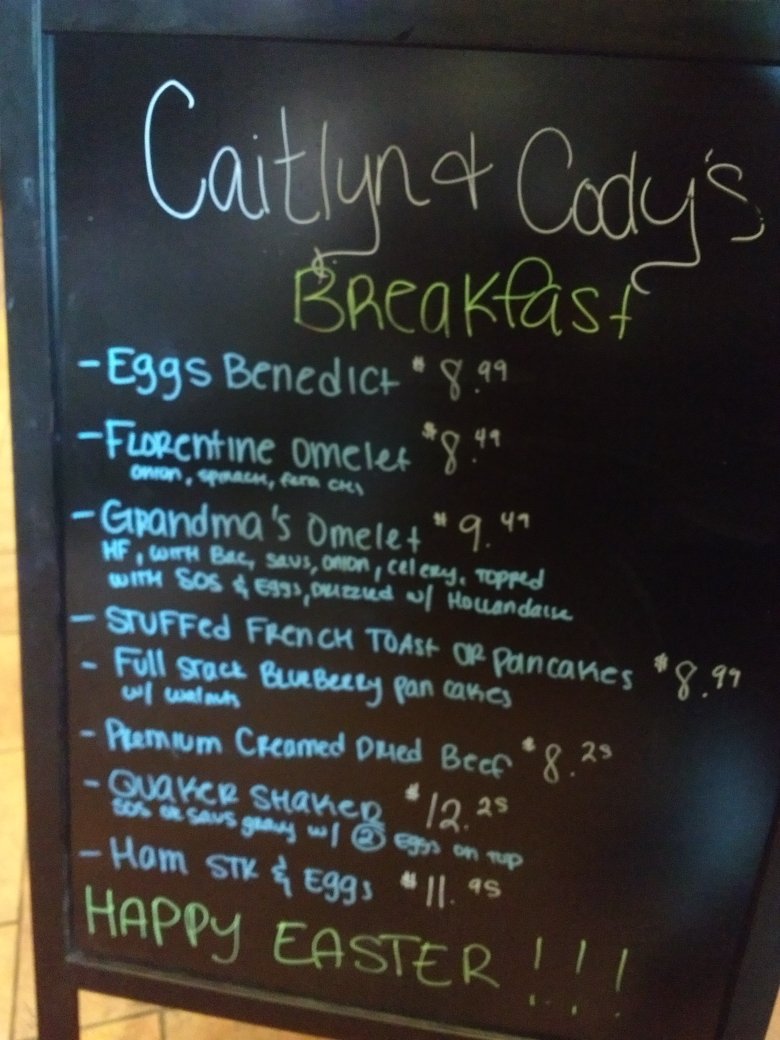 Caitlyn & Cody's
Breakfast
- Eggs Benedict $8.99
- Florentine Omelet $8.49
onion, spinach, feta chs
- Grandma's Omelet $9.49
HF, with Bac, saus, onion, celery. Topped
with SOS & Eggs, Drizzled w/ Hollandaise
- Stuffed French Toast or Pancakes $8.99
- Full Stack Blueberry pancakes
w/ walnuts
- Premium Creamed Dried Beef $8.25
- Quaker Shaker $12.25
SOS or Saus gravy w/ 2 Eggs on top
- Ham STK & Eggs $11.95
HAPPY EASTER!!!